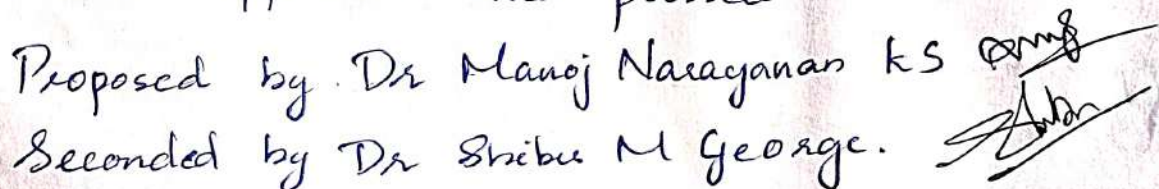 Proposed by Dr Manoj Narayanan KS
Seconded by Dr Shibu M George.